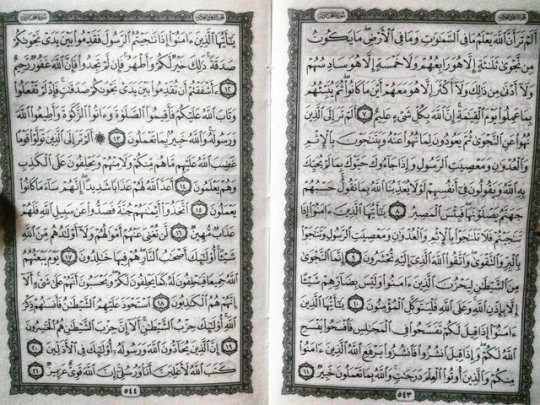 أَلَمْ تَرَ أَنَّ ٱللَّهَ يَعْلَمُ مَا فِى ٱلسَّمَٰوَٰتِ وَمَا فِى ٱلْأَرْضِ ۖ مَا يَكُونُ
مِن نَّجْوَىٰ ثَلَٰثَةٍ إِلَّا هُوَ رَابِعُهُمْ وَلَا خَمْسَةٍ إِلَّا هُوَ سَادِسُهُمْ
وَلَآ أَدْنَىٰ مِن ذَٰلِكَ وَلَآ أَكْثَرَ إِلَّا هُوَ مَعَهُمْ أَيْنَ مَا كَانُوا۟ ۖ ثُمَّ يُنَبِّئُهُم
بِمَا عَمِلُوا۟ يَوْمَ ٱلْقِيَٰمَةِ ۚ إِنَّ ٱللَّهَ بِكُلِّ شَىْءٍ عَلِيمٌ ٧ أَلَمْ تَرَ إِلَى ٱلَّذِينَ
نُهُوا۟ عَنِ ٱلنَّجْوَىٰ ثُمَّ يَعُودُونَ لِمَا نُهُوا۟ عَنْهُ وَيَتَنَٰجَوْنَ بِٱلْإِثْمِ
وَٱلْعُدْوَٰنِ وَمَعْصِيَتِ ٱلرَّسُولِ وَإِذَا جَآءُوكَ حَيَّوْكَ بِمَا لَمْ يُحَيِّكَ
بِهِ ٱللَّهُ وَيَقُولُونَ فِىٓ أَنفُسِهِمْ لَوْلَا يُعَذِّبُنَا ٱللَّهُ بِمَا نَقُولُ ۚ حَسْبُهُمْ
جَهَنَّمُ يَصْلَوْنَهَا ۖ فَبِئْسَ ٱلْمَصِيرُ ٨ يَٰٓأَيُّهَا ٱلَّذِينَ ءَامَنُوٓا۟ إِذَا
تَنَٰجَيْتُمْ فَلَا تَتَنَٰجَوْا۟ بِٱلْإِثْمِ وَٱلْعُدْوَٰنِ وَمَعْصِيَتِ ٱلرَّسُولِ وَتَنَٰجَوْا۟
بِٱلْبِرِّ وَٱلتَّقْوَىٰ ۖ وَٱتَّقُوا۟ ٱللَّهَ ٱلَّذِىٓ إِلَيْهِ تُحْشَرُونَ ٩ إِنَّمَا ٱلنَّجْوَىٰ
مِنَ ٱلشَّيْطَٰنِ لِيَحْزُنَ ٱلَّذِينَ ءَامَنُوا۟ وَلَيْسَ بِضَآرِّهِمْ شَيْـًٔا
إِلَّا بِإِذْنِ ٱللَّهِ ۚ وَعَلَى ٱللَّهِ فَلْيَتَوَكَّلِ ٱلْمُؤْمِنُونَ ١٠ يَٰٓأَيُّهَا ٱلَّذِينَ
ءَامَنُوٓا۟ إِذَا قِيلَ لَكُمْ تَفَسَّحُوا۟ فِى ٱلْمَجَٰلِسِ فَٱفْسَحُوا۟ يَفْسَحِ
ٱللَّهُ لَكُمْ ۖ وَإِذَا قِيلَ ٱنشُزُوا۟ فَٱنشُزُوا۟ يَرْفَعِ ٱللَّهُ ٱلَّذِينَ ءَامَنُوا۟
مِنكُمْ وَٱلَّذِينَ أُوتُوا۟ ٱلْعِلْمَ دَرَجَٰتٍ ۚ وَٱللَّهُ بِمَا تَعْمَلُونَ خَبِيرٌ ١١
٥٤٣
يَٰٓأَيُّهَا ٱلَّذِينَ ءَامَنُوٓا۟ إِذَا نَٰجَيْتُمُ ٱلرَّسُولَ فَقَدِّمُوا۟ بَيْنَ يَدَىْ نَجْوَىٰكُمْ
صَدَقَةً ۚ ذَٰلِكَ خَيْرٌ لَّكُمْ وَأَطْهَرُ ۚ فَإِن لَّمْ تَجِدُوا۟ فَإِنَّ ٱللَّهَ غَفُورٌ رَّحِيمٌ
١٢ ءَأَشْفَقْتُمْ أَن تُقَدِّمُوا۟ بَيْنَ يَدَىْ نَجْوَىٰكُمْ صَدَقَٰتٍ ۚ فَإِذْ لَمْ تَفْعَلُوا۟
وَتَابَ ٱللَّهُ عَلَيْكُمْ فَأَقِيمُوا۟ ٱلصَّلَوٰةَ وَءَاتُوا۟ ٱلزَّكَوٰةَ وَأَطِيعُوا۟ ٱللَّهَ
وَرَسُولَهُۥ ۚ وَٱللَّهُ خَبِيرٌۢ بِمَا تَعْمَلُونَ ١٣ ۞ أَلَمْ تَرَ إِلَى ٱلَّذِينَ تَوَلَّوْا۟ قَوْمًا
غَضِبَ ٱللَّهُ عَلَيْهِم مَّا هُم مِّنكُمْ وَلَا مِنْهُمْ وَيَحْلِفُونَ عَلَى ٱلْكَذِبِ
وَهُمْ يَعْلَمُونَ ١٤ أَعَدَّ ٱللَّهُ لَهُمْ عَذَابًا شَدِيدًا ۖ إِنَّهُمْ سَآءَ مَا كَانُوا۟
يَعْمَلُونَ ١٥ ٱتَّخَذُوٓا۟ أَيْمَٰنَهُمْ جُنَّةً فَصَدُّوا۟ عَن سَبِيلِ ٱللَّهِ فَلَهُمْ
عَذَابٌ مُّهِينٌ ١٦ لَّن تُغْنِىَ عَنْهُمْ أَمْوَٰلُهُمْ وَلَآ أَوْلَٰدُهُم مِّنَ ٱللَّهِ
شَيْـًٔا ۚ أُو۟لَٰٓئِكَ أَصْحَٰبُ ٱلنَّارِ ۖ هُمْ فِيهَا خَٰلِدُونَ ١٧ يَوْمَ يَبْعَثُهُمُ
ٱللَّهُ جَمِيعًا فَيَحْلِفُونَ لَهُۥ كَمَا يَحْلِفُونَ لَكُمْ ۖ وَيَحْسَبُونَ أَنَّهُمْ عَلَىٰ شَىْءٍ ۚ أَلَآ
إِنَّهُمْ هُمُ ٱلْكَٰذِبُونَ ١٨ ٱسْتَحْوَذَ عَلَيْهِمُ ٱلشَّيْطَٰنُ فَأَنسَىٰهُمْ ذِكْرَ
ٱللَّهِ ۚ أُو۟لَٰٓئِكَ حِزْبُ ٱلشَّيْطَٰنِ ۚ أَلَآ إِنَّ حِزْبَ ٱلشَّيْطَٰنِ هُمُ ٱلْخَٰسِرُونَ
١٩ إِنَّ ٱلَّذِينَ يُحَآدُّونَ ٱللَّهَ وَرَسُولَهُۥٓ أُو۟لَٰٓئِكَ فِى ٱلْأَذَلِّينَ ٢٠
كَتَبَ ٱللَّهُ لَأَغْلِبَنَّ أَنَا۠ وَرُسُلِىٓ ۚ إِنَّ ٱللَّهَ قَوِىٌّ عَزِيزٌ ٢١
٥٤٤